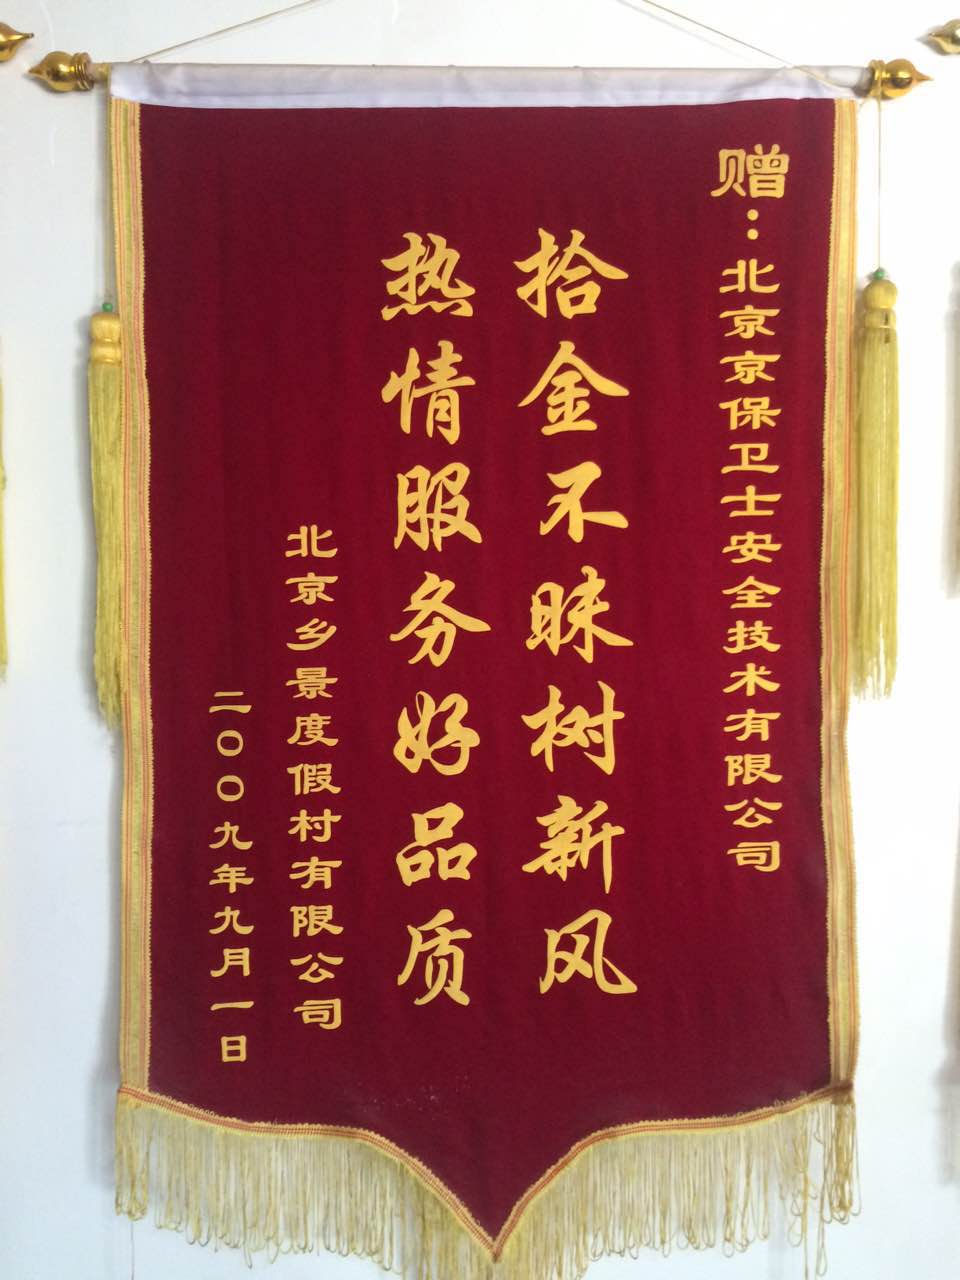 赠：北京京保卫士安全技术有限公司
拾金不昧树新风
热情服务好品质
北京乡景度假村有限公司
二00九年九月一日